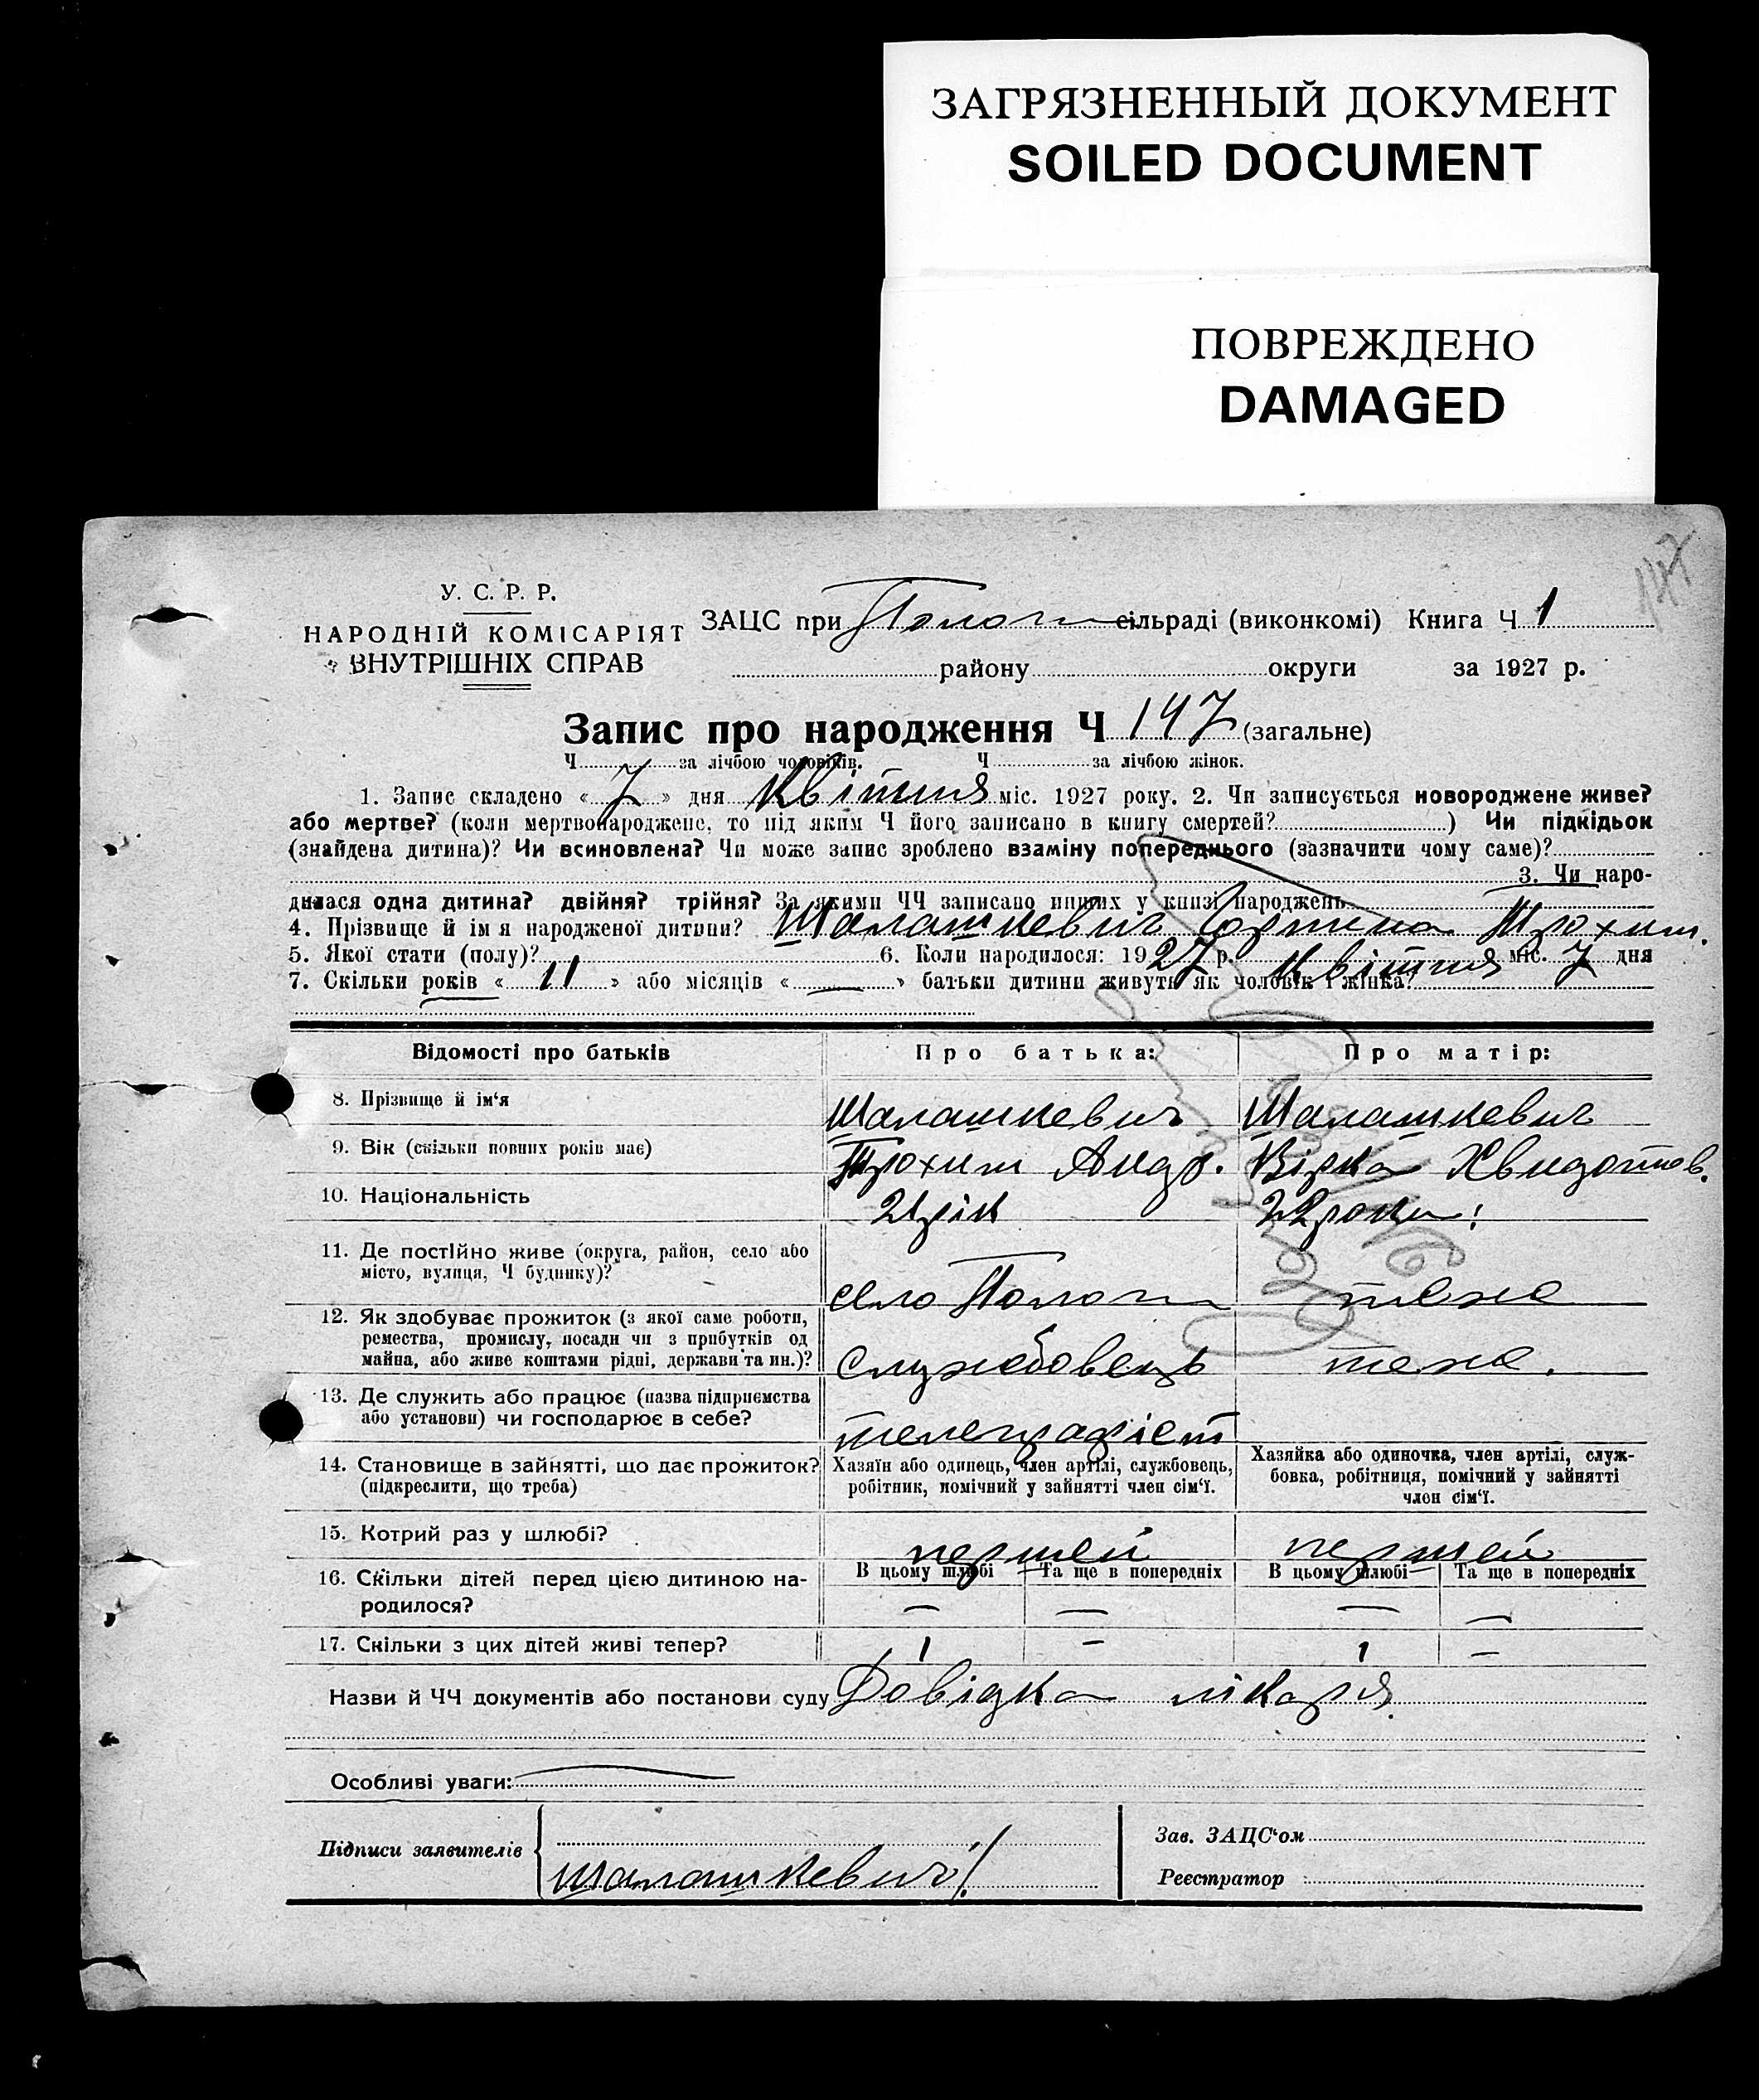 ЗАГРЯЗНЕННЫЙ ДОКУМЕНТ
SOILED DOCUMENT
ПОВРЕЖДЕНО
DAMAGED
147
У. С. Р. Р.
НАРОДНІЙ КОМІСАРІЯТ
ВНУТРІШНІХ СПРАВ
ЗАЦС при Пологи сільраді (виконкомі) Книга Ч 1
району округи за 1927 р.
Запис про народження Ч 147 (загальне)
Ч за лічбою чоловіків. Ч за лічбою жінок.
1. Запис складено « 7 » дня Квітня міс. 1927 року. 2. Чи записується новороджене живе?
або мертве? (коли мертвонароджене, то під яким Ч його записано в книгу смертей? ) Чи підкідьок
(знайдена дитина)? Чи всиновлена? Чи може запис зроблено взаміну попереднього (зазначити чому саме)?
3. Чи наро-
дилася одна дитина? двійня? трійня? За якими ЧЧ записано инших у книзі народжень
4. Прізвище й імя народженої дитини? Шалашкевич Трохим.
5. Якої стати (полу)? 6. Коли народилося: 1927 р. Квітня міс. 7 дня
7. Скільки років « 11 » або місяців « — » батьки дитини живуть як чоловік і жінка?
Відомості про батьків Про батька: Про матір:
8. Прізвище й ім‘я Шалашкевич Шалашкевич
9. Вік (скільки повних років має) Трохим Андр. Вірка
10. Національність 24 рік 22 роки
11. Де постійно живе (округа, район, село або
місто, вулиця, Ч будинку)? село Пологи теже
12. Як здобуває прожиток (з якої саме роботи,
ремества, промислу, посади чи з прибутків од
майна, або живе коштами рідні, держави та ин.)? Службовець теже.
13. Де служить або працює (назва підприємства
або установи) чи господарює в себе? телеграфіст
14. Становище в зайнятті, що дає прожиток?
(підкреслити, що треба)
Хазяїн або одинець, член артілі, службовець,
робітник, помічний у зайнятті член сім‘ї.
Хазяйка або одиночка, член артілі, служ-
бовка, робітниця, помічний у зайнятті
член сім‘ї.
15. Котрий раз у шлюбі? першей першей
16. Скільки дітей перед цією дитиною на-
родилося?
В цьому шлюбі Та ще в попередніх В цьому шлюбі Та ще в попередніх
— — — —
17. Скільки з цих дітей живі тепер? 1 — 1 —
Назви й ЧЧ документів або постанови суду Довідка лікаря.
Особливі уваги: —
Підписи заявителів Шалашкевич
Зав. ЗАЦС‘ом
Реєстратор